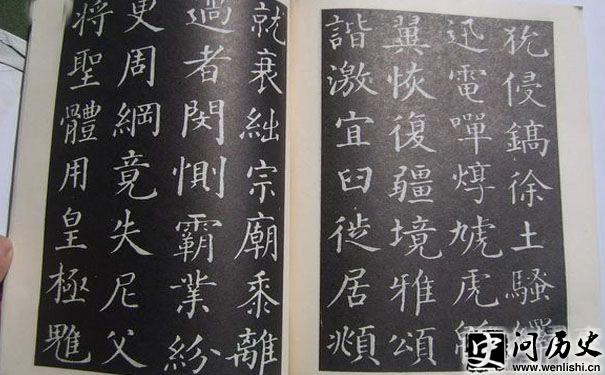 狁侵鎬徐土騷繹
迅電嘽焞虓虎
翼恢復疆境雅頌
諧激宜臼徙居頫
就衰絀宗廟黍離
過者閔惻霸業紛
更周綱竟失尼父
將聖體用皇極雖
问历史
www.wenlishi.cn